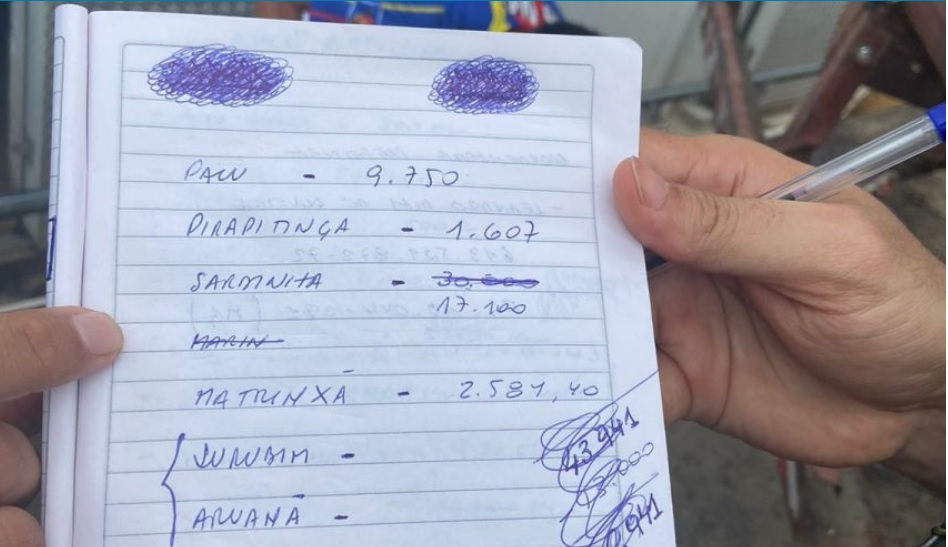 PACU - 9.750
PIRAPITINGA - 1.607
SARDINHA - 30.000
17.100
MARIN
MATRINXÃ - 2.581,40
SURUBIM -
43.941
ARUANÃ -